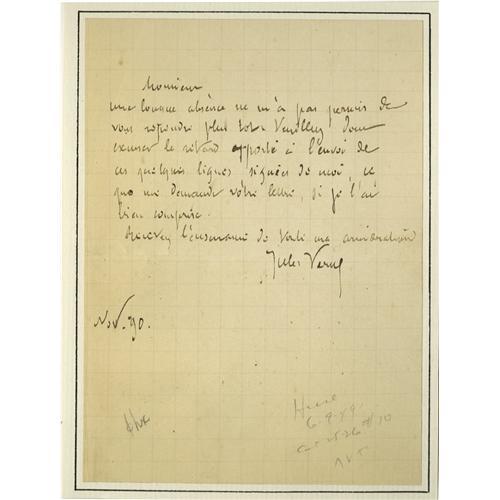 Monsieur
une longue absence ne m'a pas permis de
vous répondre plus tôt. Veuillez donc
excuser le retard apporté à l'envoi de
ces quelques lignes signées de moi, ce
que me demande votre lettre, si je l'ai
bien comprise.
Recevez l'assurance de toute ma considération
Jules Verne
Nov. 90.
6.9.49